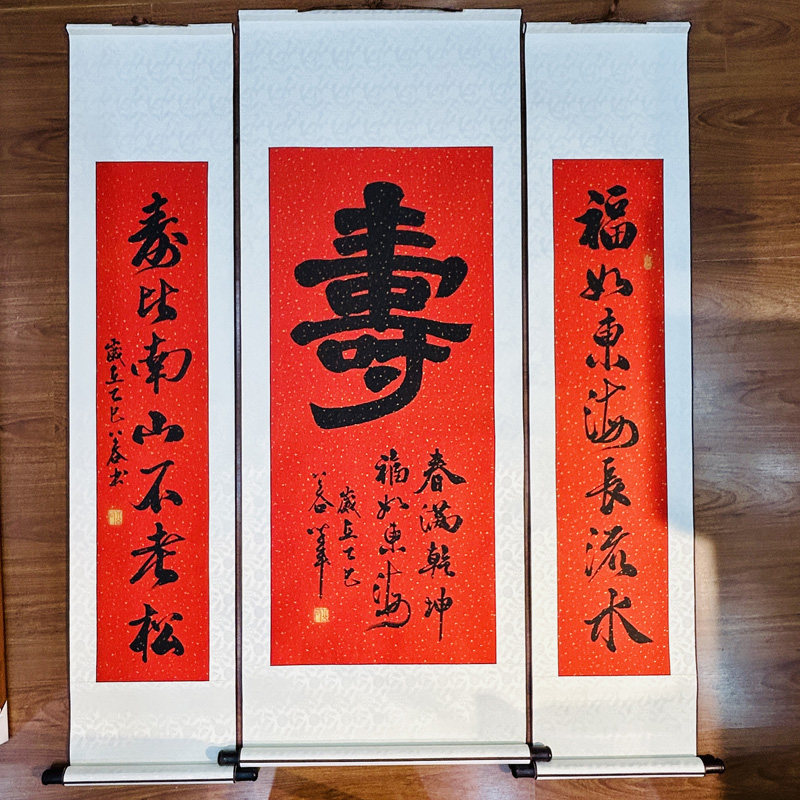 福如東海長流水
壽
春滿乾坤
福如東海
歲在乙巳
寿比南山不老松
歲在乙巳